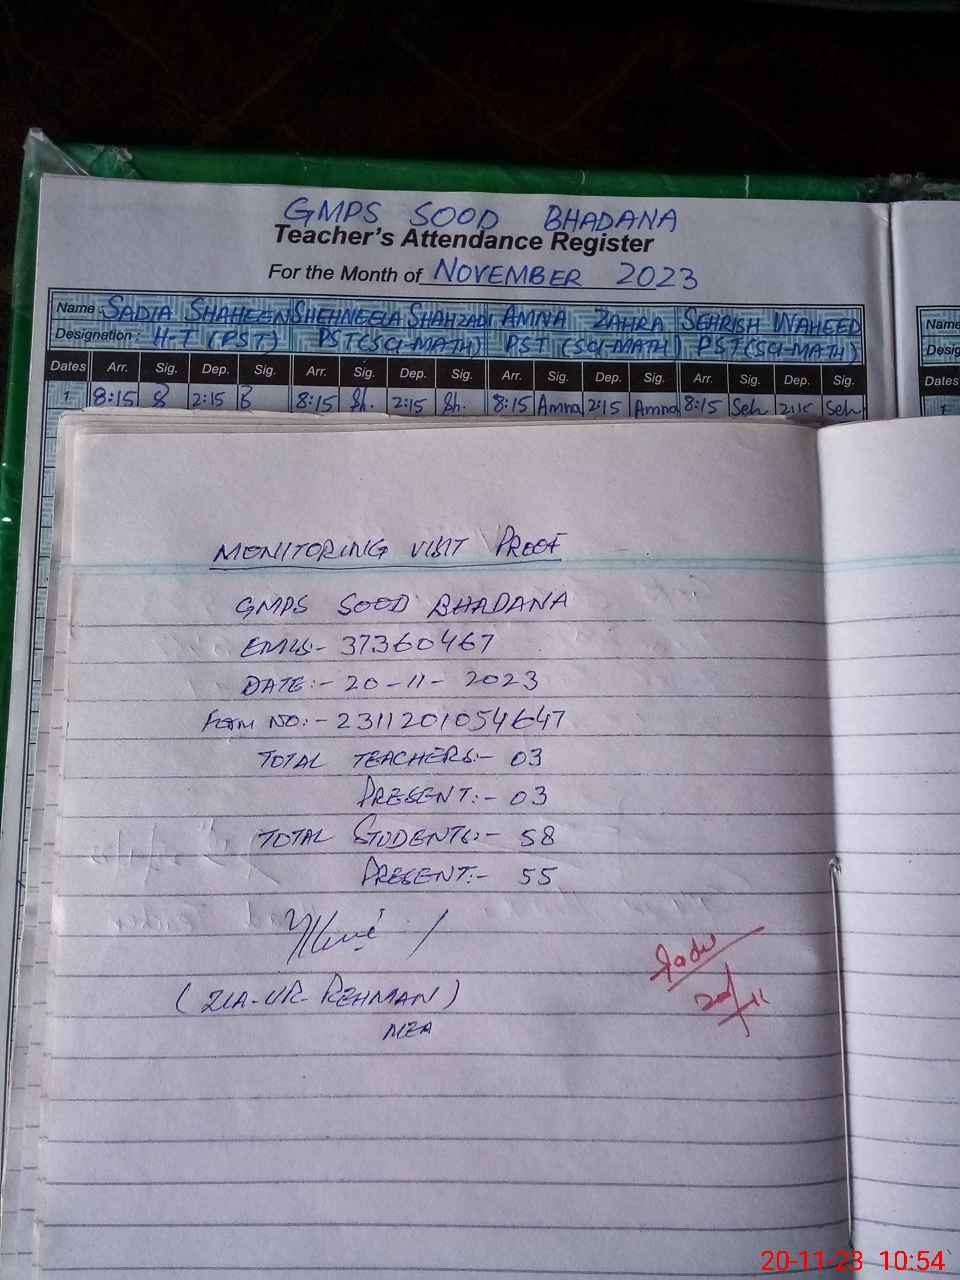 GMPS SOOD BHADANA
Teacher's Attendance Register
For the Month of NOVEMBER 2023
Name : SADIA SHAHEEN SHEHNEELA SHAHZADI AMNA ZAHRA SEHRISH WAHEED
Designation : H-T (PST) PST(SCI-MATH) PST (SCI-MATH) PST(SCI-MATH)
Dates Arr. Sig. Dep. Sig. Arr. Sig. Dep. Sig. Arr. Sig. Dep. Sig. Arr. Sig. Dep. Sig.
1 8:15 2:15 8:15 Sh. 2:15 Sh. 8:15 Amna 2:15 Amna 8:15 Seh 2:15 Seh
Name
Desig
Dates
MONITORING VISIT PROOF
GMPS SOOD BHADANA
EMIS:- 37360467
DATE:- 20-11-2023
FORM NO:- 2311201054647
TOTAL TEACHERS:- 03
PRESENT:- 03
TOTAL STUDENTS:- 58
PRESENT:- 55
(ZIA-UR-REHMAN)
MEA
20/11
20-11-23 10:54